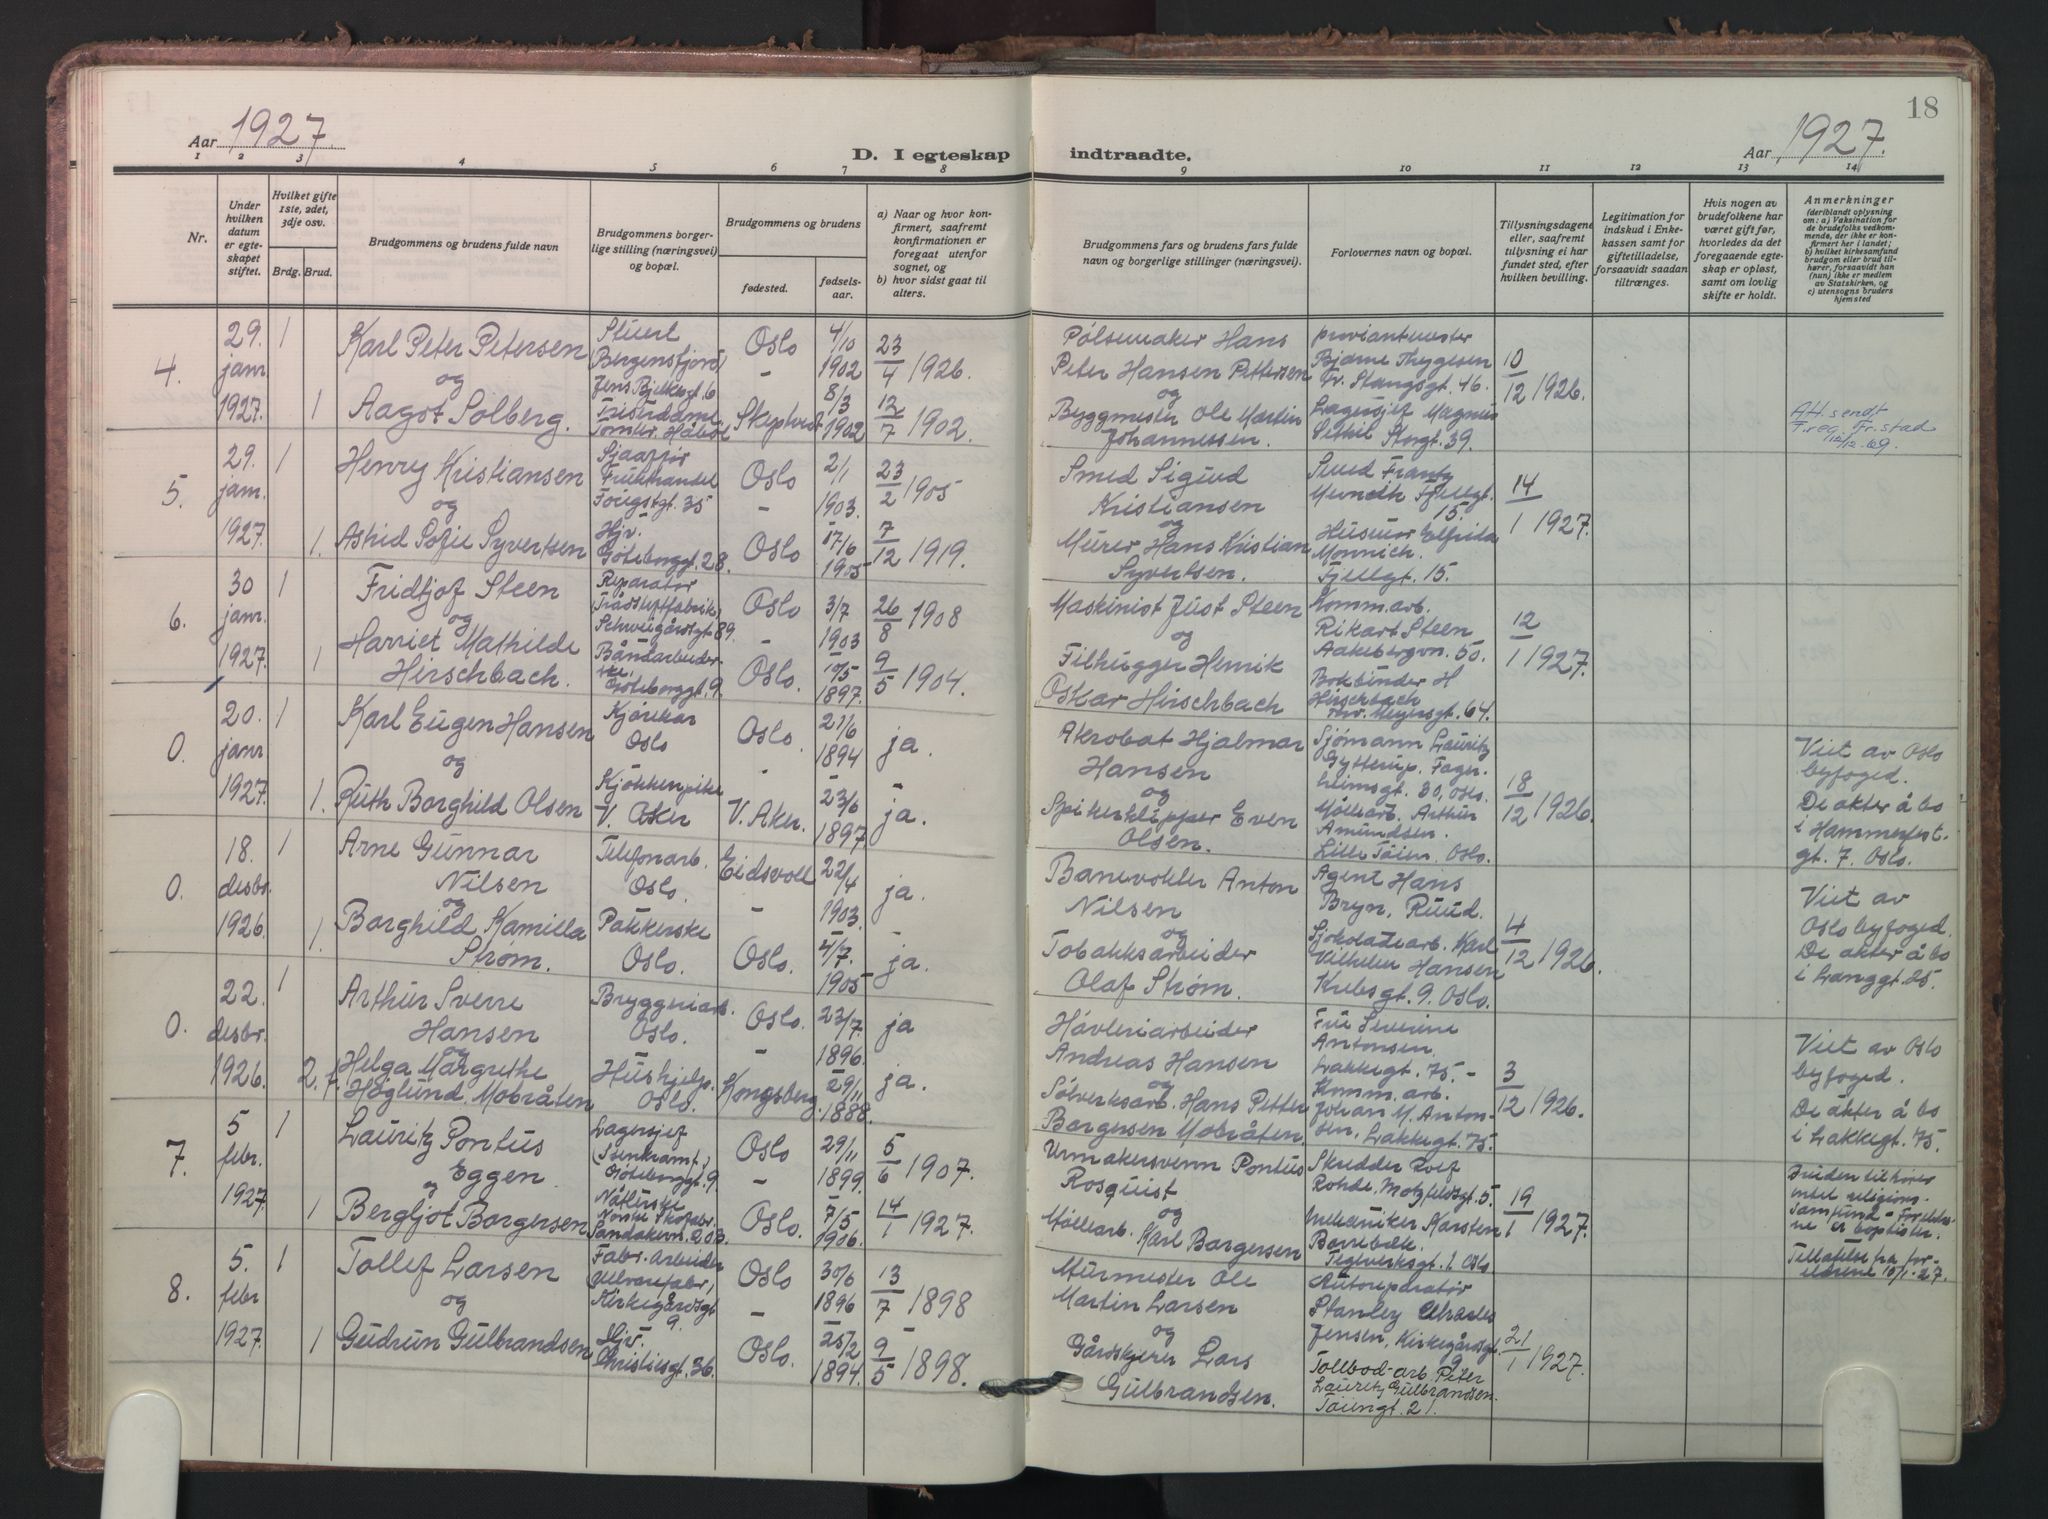 18
Aar 1927.
D. I egteskap indtraadte.
Aar 1927.
1 2 3 4 5 6 7 8 9 10 11 12 13 14
Nr.
Under hvilken datum er egte-skapet stiftet.
Hvilket gifte 1ste, 2det, 3dje osv.
Brdg. Brud.
Brudgommens og brudens fulde navn
Brudgommens borger-lige stilling (næringsvei) og bopæl.
Brudgommens og brudens
fødested.
fødsels-aar.
a) Naar og hvor kon-firmert, saafremt konfirmationen er foregaat utenfor sognet, og
b) hvor sidst gaat til alters.
Brudgommens fars og brudens fars fulde navn og borgerlige stillinger (næringsvei).
Forlovernes navn og bopæl.
Tillysningsdagene eller, saafremt tillysning ei har fundet sted, efter hvilken bevilling.
Legitimation for indskud i Enke-kassen samt for giftetilladelse, forsaavidt saadan tiltrænges.
Hvis nogen av brudefolkene har været gift før, hvorledes da det foregaaende egte-skap er opløst, samt om lovlig skifte er holdt.
Anmerkninger
(deriblandt oplysning om: a) Vaksination for de brudefolks vedkom-mende, der ikke er kon-firmert her i landet; b) hvilket kirkesamfund brudgom eller brud til-hører, forsaavidt han (hun) ikke er medlem av Statskirken, og c) utensogns bruders hjemsted
4. 29. janr. 1927. 1
Karl Peter Petersen
og
1 Aagot Solberg.
Stuert
(Bergensfjord)
Jens Bjelkesgt. 6
Tomter, Håbøl
Oslo 4/10 1902 23/4 1926.
Skiptvet 8/3 1902 12/7 1902.
Pølsemaker Hans
Peter Hansen Pettersen
og
Byggmester Ole Martin
Johannessen.
proviantmester
Bjarne Thygesen
Fr. Stangsgt. 46.
Lagersjef Magnus
Storgt. 39.
10/12 1926.
Att. sendt
Freg. Fr.stad
12/12.69.
5. 29. jan. 1927. 1
Henry Kristiansen
og
1. Astrid Sofie Syvertsen
Sjåffør
Frukthandel
35
Hjv.
Gøteborggt. 28.
Oslo 2/1 1903. 23/2 1905
Oslo 17/6 1905 7/12 1919.
Smed Sigud
Kristiansen
og
Murer Hans Kristian
Syvertsen.
Smed Frantz
Fjellgt.
15.
Husmor Elfrida
Monnich.
Fjellgt. 15.
14/1 1927.
6. 30 janr. 1927. 1
Fridtjof Steen
og
1 Harriet Mathilde
Hirschbach.
Reparatør
Schweigårdsgt. 89.
Båndarbeider-
ske.
Gøteborggt. 9.
Oslo 3/7 1903 26/8 1908
Oslo. 10/5 1897. 9/5 1904.
Maskinist Just Steen
og
Filhugger Henrik
Oskar Hirschbach
Komm.arb.
Rikart Steen
Aakebergvn. 50.
Bokbinder H
Hirschbach
Meyersgt. 64.
12/1 1927.
0. 20. janr 1927. 1
Karl Eugen Hansen
og
1. Ruth Borghild Olsen
Kjørekar
Oslo
Kjøkkenpike
V. Aker
Oslo. 21/6 1894 ja.
V. Aker. 23/6 1897 ja.
Akrobat Hjalmar
Hansen
og
Spikerklipper Even
Olsen.
Sjømann Lauritz
Gytterup. Fager-
heimsgt. 30, Oslo.
Møllearb. Arthur
Amundsen.
Lille Tøien. Oslo.
18/12 1926.
Viet av Oslo
byfoged.
De akter å bo
i Hammerfest-
gt. 7. Oslo.
0. 18. desbr. 1926. 1
Arne Gunnar
Nilsen
og
1. Borghild Kamilla
Strøm.
Telefonarb.
Oslo.
Pakkerske
Oslo.
Eidsvoll 22/4 1903. ja.
Oslo. 4/7. 1905 ja.
Banevokter Anton
Nilsen
og
Tobakksarbeider
Olaf Strøm.
Agent Hans
Bryn, Ruud.
Sjokoladearb. Karl
Vilhelm Hansen
Krebsgt. 9. Oslo.
4/12 1926.
Viet av
Oslo byfoged.
De akter å bo
i Langgt. 25.
0. 22. desbr. 1926. 1
Arthur Sverre
Hansen
og
2. Helga Margrethe
Høglund, f. Mobråten
Bryggeriarb.
Oslo.
Hushjelp.
Oslo.
Oslo. 23/7. 1896 ja
Kongsberg 29/11 1888. ja.
Høvleriarbeider
Andreas Hansen
og
Sølverksarb. Hans Petter
Borgersen Mobråten.
Fru Severine
Antonsen.
Lakkegt. 75. -
Komm. arb.
Johan M. Anton-
sen, Lakkegt. 75.
3/12 1926.
Viet av Oslo
byfoged.
De akter å bo
i Lakkegt. 75.
7. 5 febr. 1927 1
Lauritz Pontus
Eggen
og
1 Bergljot Borgersen
Lagersjef
(Isenkramf.)
Gøteborggt. 9
Nåtlerske
Norsk Skofabr.
Sandakervn. 20B.
Oslo 29/11 1899. 5/6 1907.
Oslo. 7/5 1906. 14/1 1927.
Urmakersvenn Pontus
Rosquist
og
Møllearb. Karl Borgersen
Skredder Rolf
Rohde, Motzfeldsgt. 5
Mekaniker Karsten
Barrebæk.
Teglverksgt. 1 Oslo
19/1 1927.
Bruden tilhører
intet religions-
samfund - Foreldre-
ne er baptister.
Tillatelse fra for-
eldrene 10/1-27.
8. 5. febr 1927. 1
Tollef Larsen
og
1 Gudrun Gulbrandsen
Fabr. arbeider
Kirkegårdsgt
9.
Hjv.
Christiesgt. 36.
Oslo 30/6 1896 13/7 1898
Oslo. 25/2 1894. 9/5 1898.
Murmester Ole
Martin Larsen
og
Gårdskjører Lars
Gulbrandsen.
Autoreparatør
Stanley Charles
Jensen, Kirkegårdsgt.
9
Tollbod-arb. Peter
Lauritz Gulbrandsen.
Tøiengt. 21.
21/1 1927.